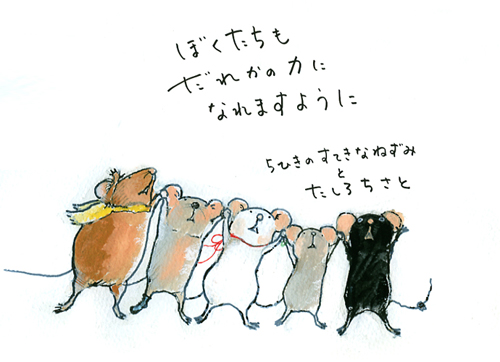 ぼくたちも
だれかの力に
なれますように
5ひきのすてきなねずみ
と
たしろちさと